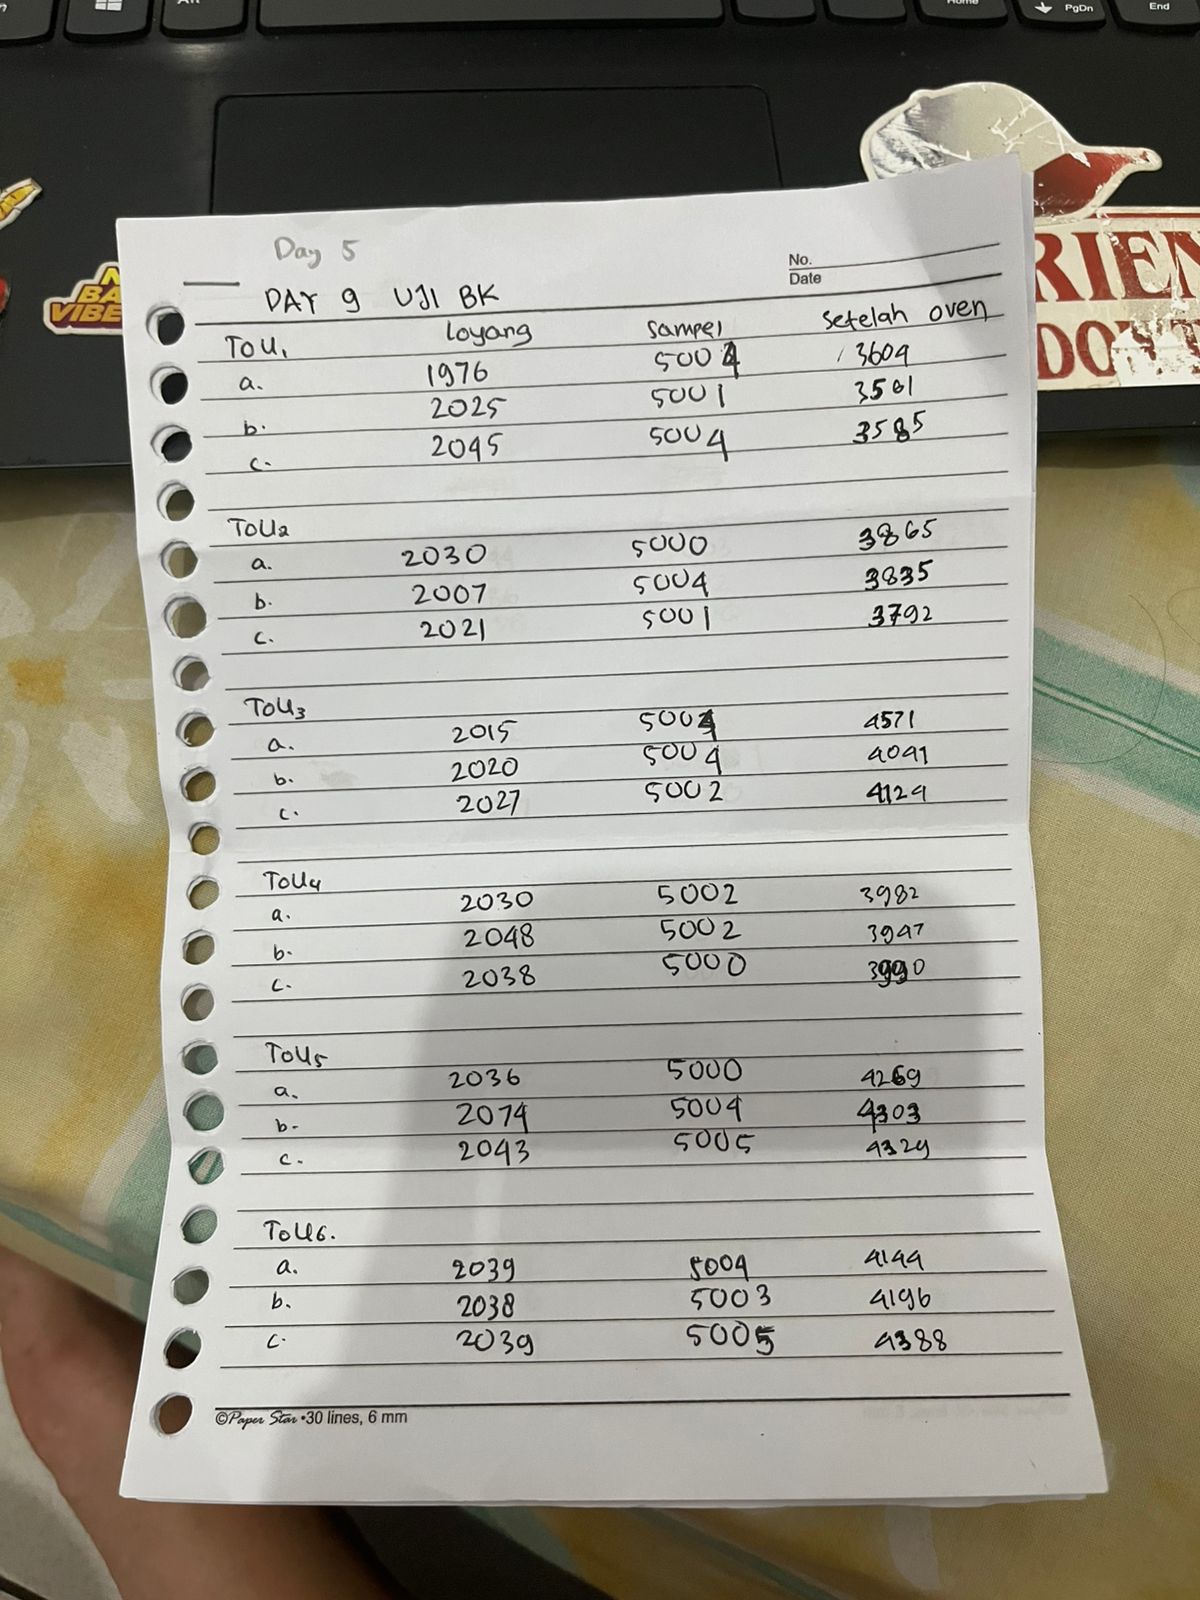 PgDn
End
Day 5
No.
Date
DAY 9 UJI BK
Loyang Sampel Setelah oven
ToU1
a. 1976 5004 3604
b. 2025 5001 3561
c. 2045 5004 3585
ToU2
a. 2030 5000 3865
b. 2007 5004 3835
c. 2021 5001 3792
ToU3
a. 2015 5004 4571
b. 2020 5004 4041
c. 2027 5002 4124
ToU4
a. 2030 5002 3982
b. 2048 5002 3947
c. 2038 5000 3990
ToU5
a. 2036 5000 4269
b. 2074 5004 4303
c. 2043 5005 4329
ToU6.
a. 2039 5004 4144
b. 2038 5003 4196
c. 2039 5005 4388
©Paper Star •30 lines, 6 mm